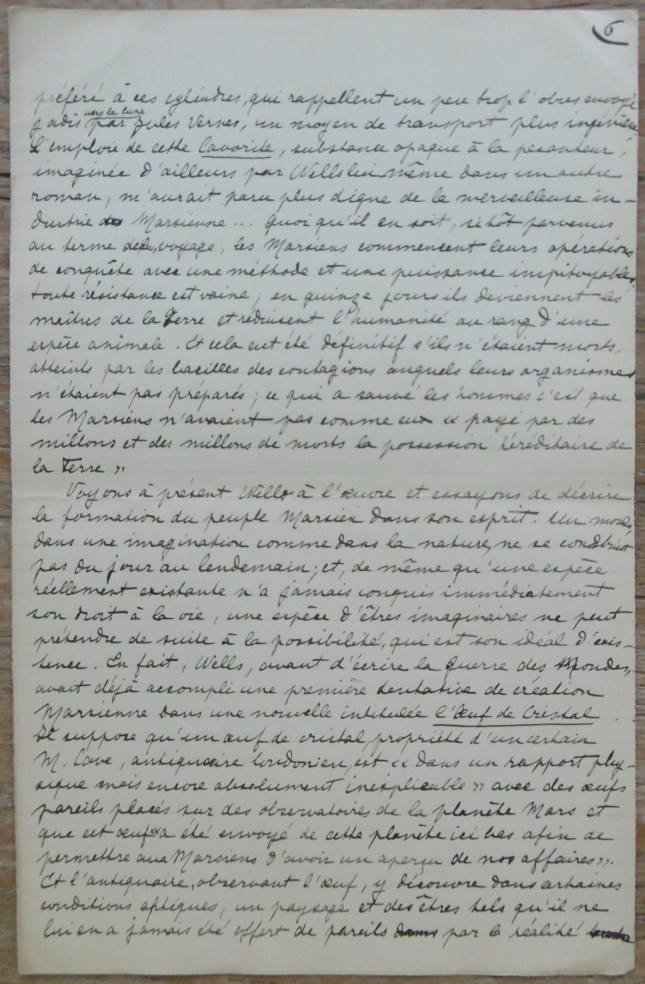 6
préféré à ces cylindres, qui rappellent un peu trop l'obus envoyé
jadis vers la lune par Jules Vernes, un moyen de transport plus ingénieux.
L'emploie de cette Cavorite, substance opaque à la pesanteur,
imaginée d'ailleurs par Wells lui même dans un autre
roman, m'aurait paru plus digne de la merveilleuse in-
dustrie Marsienne... Quoi qu'il en soit, sitôt parvenus
au terme de voyage, les Marsiens commencent leurs opérations
de conquête avec une méthode et une puissance impitoyables,
toute résistance est vaine; en quinze jours ils deviennent les
maîtres de la Terre et réduisent l'humanité au rang d'une
espèce animale. Et cela eut été définitif s'ils n'étaient morts,
atteints par les bacilles des contagions auxquels leurs organismes
n'étaient pas préparés; ce qui a sauvé les hommes c'est que
les Marsiens n'avaient pas comme eux « payé par des
millions et des millions de morts la possession héréditaire de
la Terre »
Voyons à présent Wells à l'œuvre et essayons de décrire
la formation du peuple Marsien dans son esprit. Un monde,
dans une imagination comme dans la nature, ne se construit
pas du jour au lendemain; et, de même qu'une espèce
réellement existante n'a jamais conquis immédiatement
son droit à la vie, une espèce d'êtres imaginaires ne peut
prétendre de suite à la possibilité, qui est son idéal d'exis-
tence. En fait, Wells, avant d'écrire la Guerre des Mondes,
avait déjà accompli une première tentative de création
Marsienne dans une nouvelle intitulée l'Œuf de Cristal.
Il suppose qu'un œuf de cristal, propriété d'un certain
M. Cave, antiquaire londonien, est « dans un rapport phy-
sique mais encore absolument inexplicable » avec des œufs
pareils placés sur des observatoires de la planète Mars et
que cet œuf « a été envoyé de cette planète ici bas afin de
permettre aux Marsiens d'avoir un aperçu de nos affaires ».
Et l'antiquaire, observant l'œuf, y découvre dans certaines
conditions optiques, un paysage et des êtres tels qu'il ne
lui en a jamais été offert de pareils par la réalité